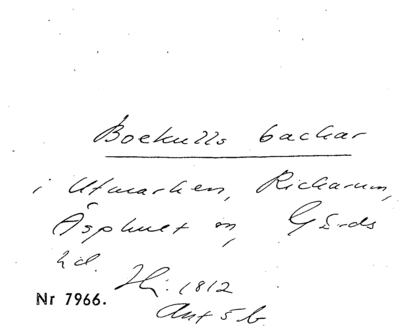 Boekulls backar
i Utmarken, Rickarum,
Äsphult sn, Gärds
hd.
Hi: 1812
Akt 5 b
Nr 7966.